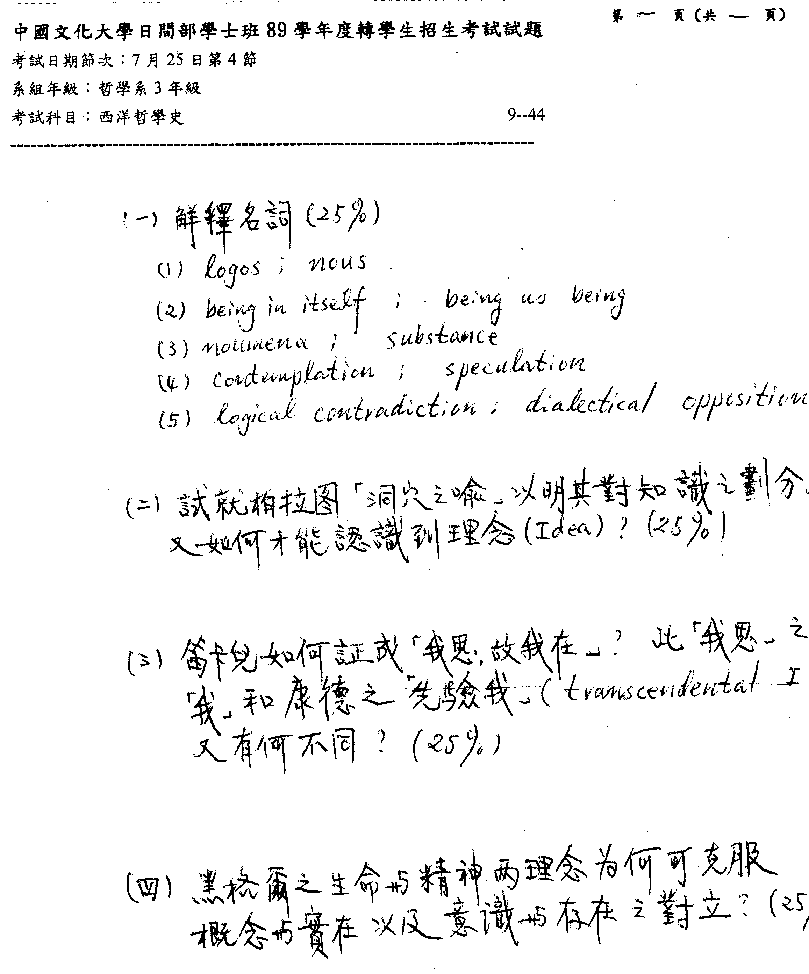 第 一 頁(共 一 頁)
中國文化大學日間部學士班89學年度轉學生招生考試試題
考試日期節次：7月25日第4節
系組年級：哲學系3年級
考試科目：西洋哲學史 9--44
(一) 解釋名詞 (25%)
(1) logos ; nous
(2) being in itself ; being as being
(3) noumena ; substance
(4) contemplation ; speculation
(5) logical contradiction ; dialectical opposition
(二) 試就柏拉图「洞穴之喻」以明其對知識之劃分.
又如何才能認識到理念(Idea)？(25%)
(三) 笛卡兒如何証成「我思,故我在」？此「我思」之
「我」和康德之「先驗我」(transcendental I
又有何不同？(25%)
(四) 黑格爾之生命与精神两理念為何可克服
概念与實在以及意識与存在之對立？(25